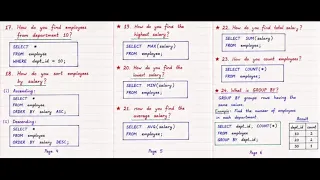 17. How do you find employees
from department 10?
SELECT *
FROM employee
WHERE dept_id = 10;
18. How do you sort employees
by salary?
(i) Ascending:
SELECT *
FROM employee
ORDER BY salary ASC;
(ii) Descending:
SELECT *
FROM employee
ORDER BY salary DESC;
Page 4
★ 19. How do you find the
highest salary?
SELECT MAX(salary)
FROM employee;
★ 20. How do you find the
lowest salary?
SELECT MIN(salary)
FROM employee;
★ 21. How do you find the
average salary?
SELECT AVG(salary)
FROM employee;
Page 5
★ 22. How do you find total salary?
SELECT SUM(salary)
FROM employee;
★ 23. How do you count employees?
SELECT COUNT(*)
FROM employee;
★ 24. What is GROUP BY?
GROUP BY groups rows having the
same values.
Example: Find the number of employees
in each department.
SELECT dept_id, COUNT(*)
FROM employee
GROUP BY dept_id;
Result
dept_id count
10 2
20 2
30 1
Page 6